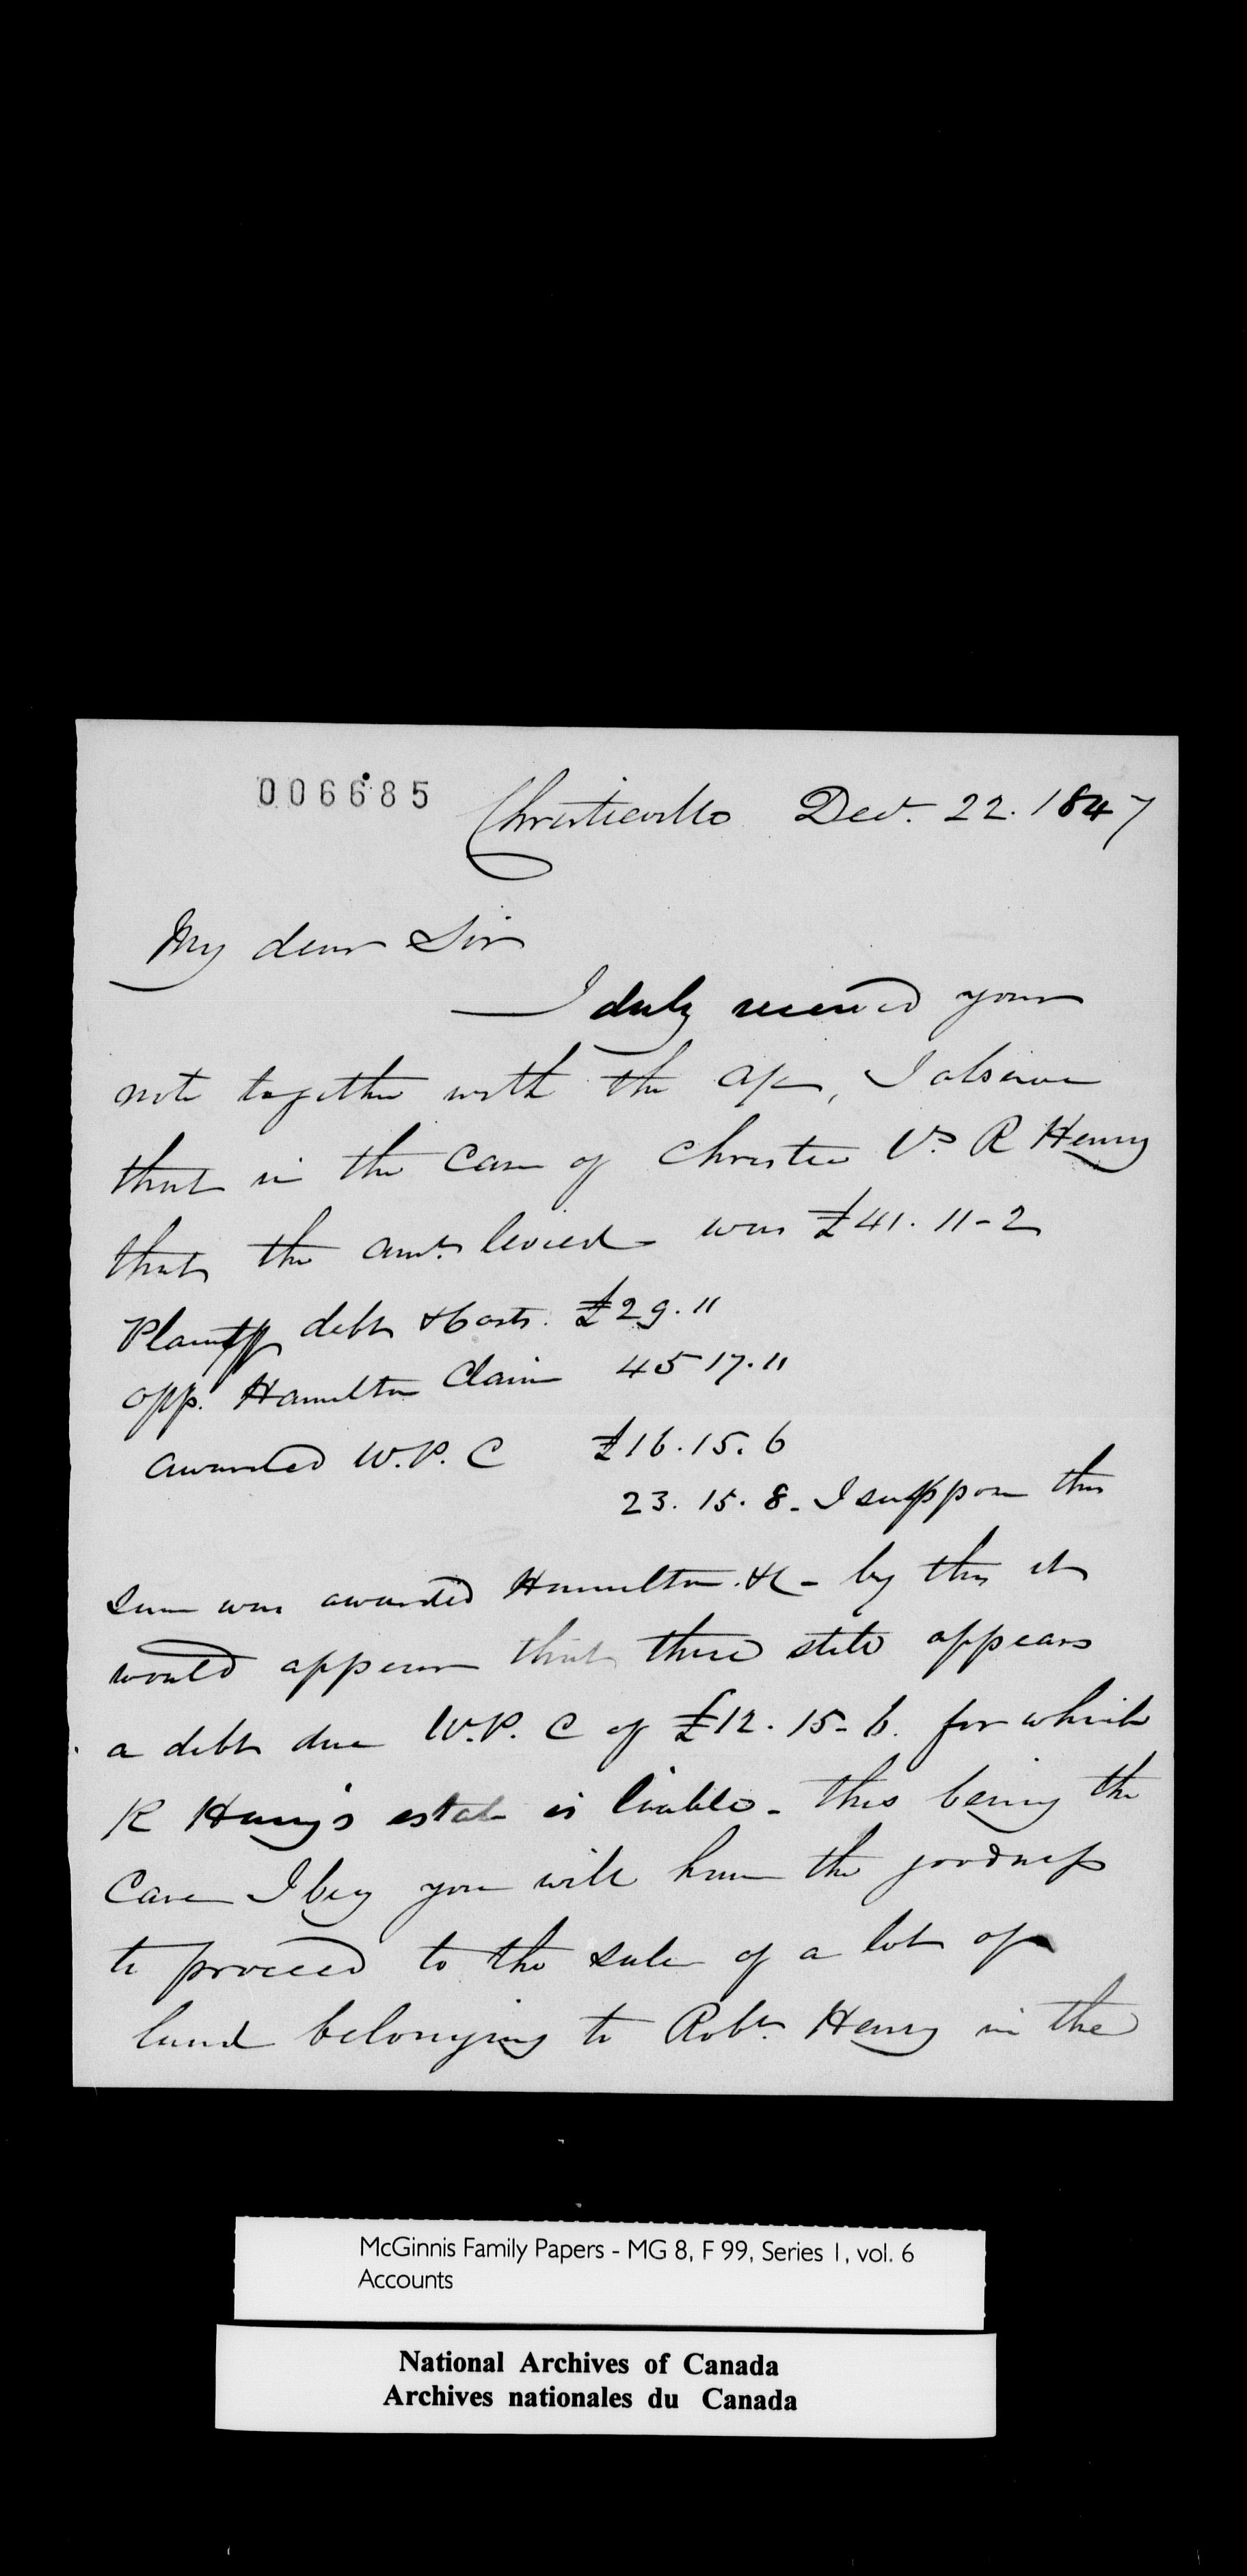 006685
Christieville Decr. 22. 1847
My dear Sir
I duly received your
note together with the a/c, I observe
that in the case of Christie Vs R Henry
that the amt. levied was £41. 11-2
Plaintiff debt & Costs. £29. 11
opp. Hamilton Claim 45 17. 11
awarded W.P. C £16. 15. 6
23. 15. 8 - I suppose this
sum was awarded Hamilton &c - by this it
would appear that there still appears
a debt due W.P. C of £12. 15 - 6. for which
R Henry's estate is liable - this being the
Case I beg you will have the goodness
to proceed to the sale of a lot of
land belonging to Robt. Henry in the
McGinnis Family Papers - MG 8, F 99, Series 1, vol. 6
Accounts
National Archives of Canada
Archives nationales du Canada